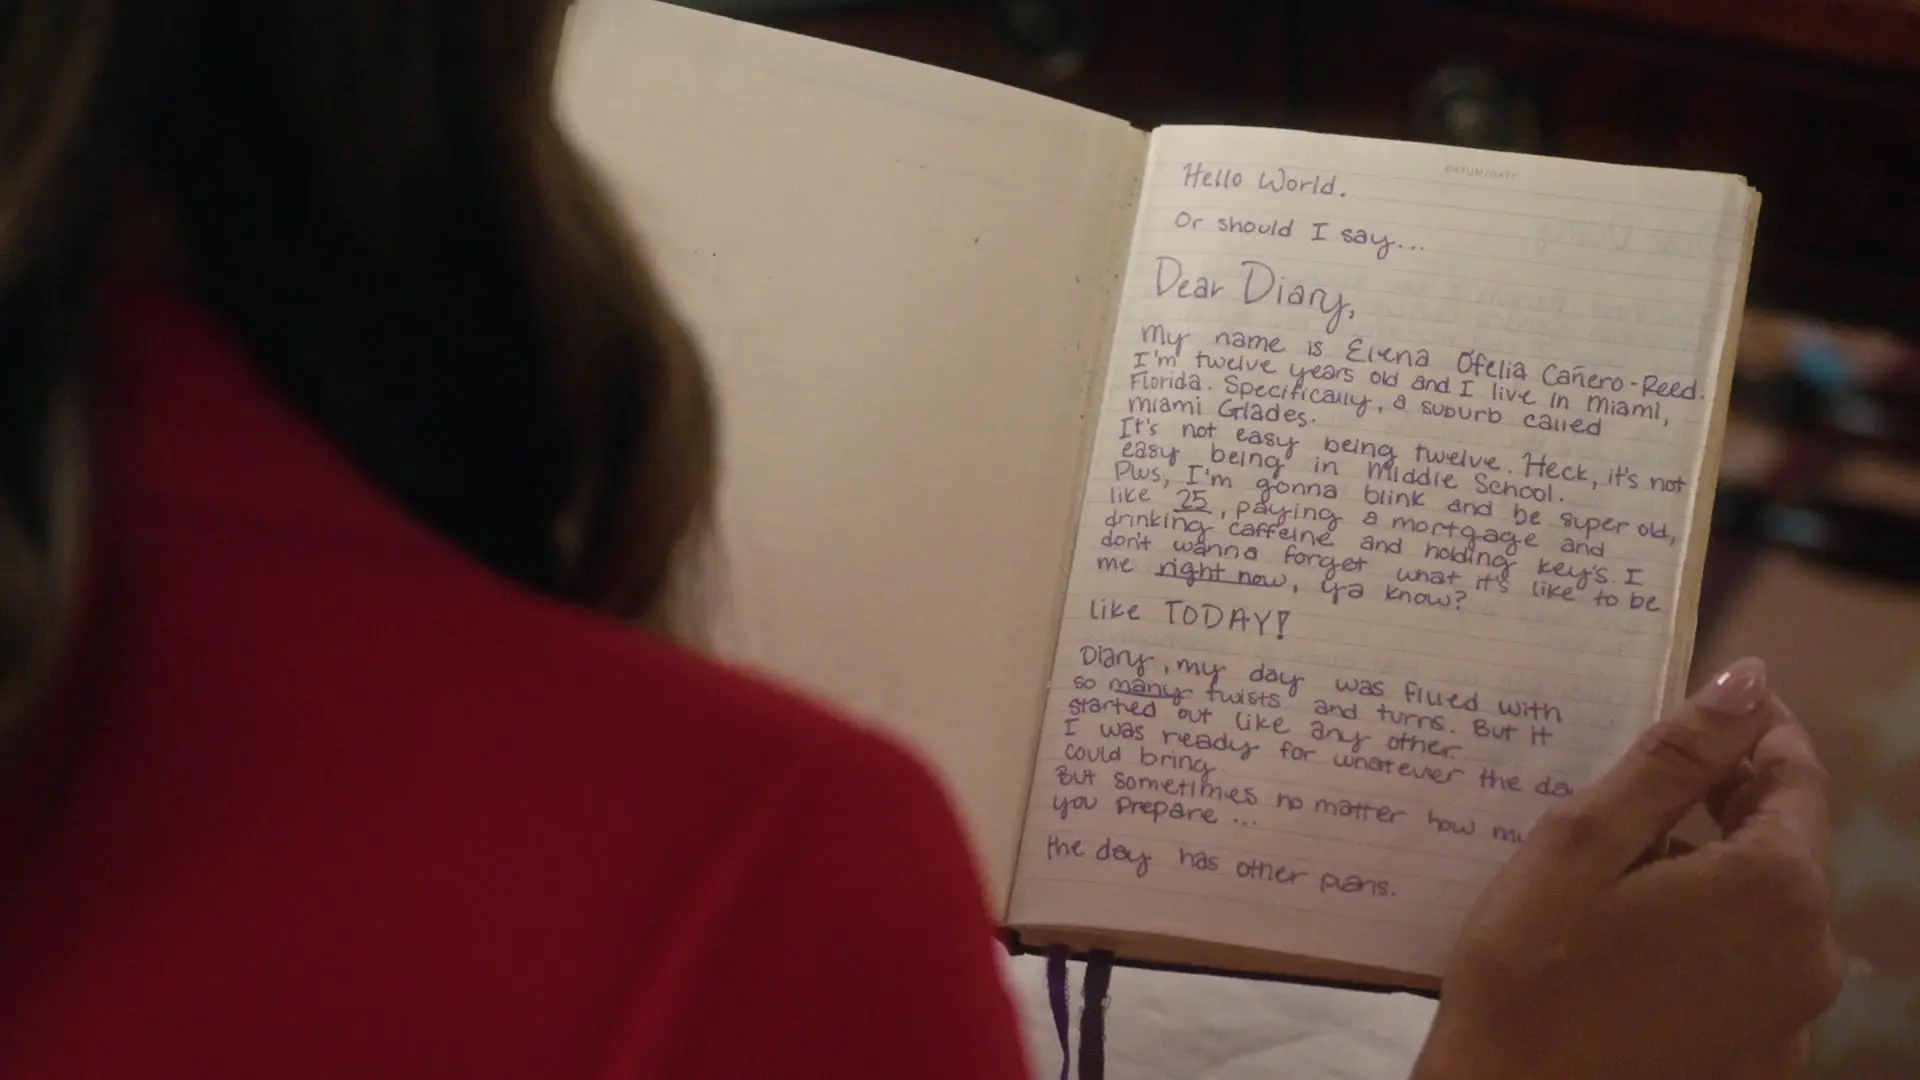 Hello World.
Or should I say...
Dear Diary,
My name is Elena Ofelia Cañero-Reed.
I'm twelve years old and I live in Miami,
Florida. Specifically, a suburb called
Miami Glades.
It's not easy being twelve. Heck, it's not
easy being in Middle School.
Plus, I'm gonna blink and be super old,
like 25, paying a mortgage and
drinking caffeine and holding key's. I
don't wanna forget what it's like to be
me right now, ya know?
like TODAY!
Diary, my day was filled with
so many twists and turns. But it
started out like any other.
I was ready for whatever the da
could bring.
But sometimes no matter how mu
you prepare ...
the day has other plans.